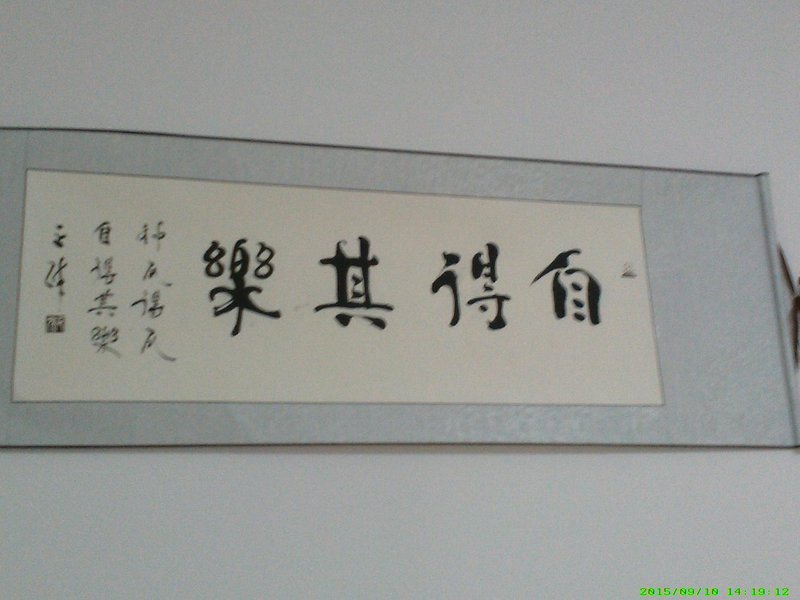 自得其樂
种瓜得瓜
自得其樂
2015/09/10 14:19:12